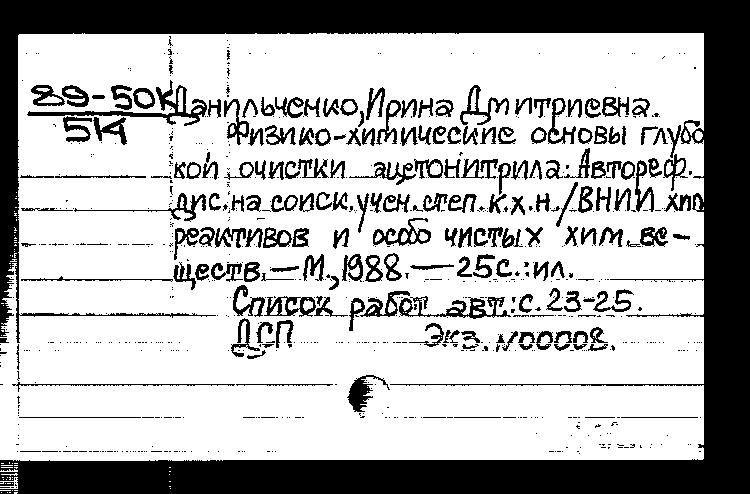 89-50К
514
Данильченко, Ирина Дмитриевна.
Физико-химические основы глубо
кой очистки ацетонитрила: Автореф.
дис. на соиск. учен. степ. к.х.н. / ВНИИ хим
реактивов и особо чистых хим. ве-
ществ. — М., 1988. — 25с.: ил.
Список работ авт.: с. 23-25.
ДСП Экз. N00008.